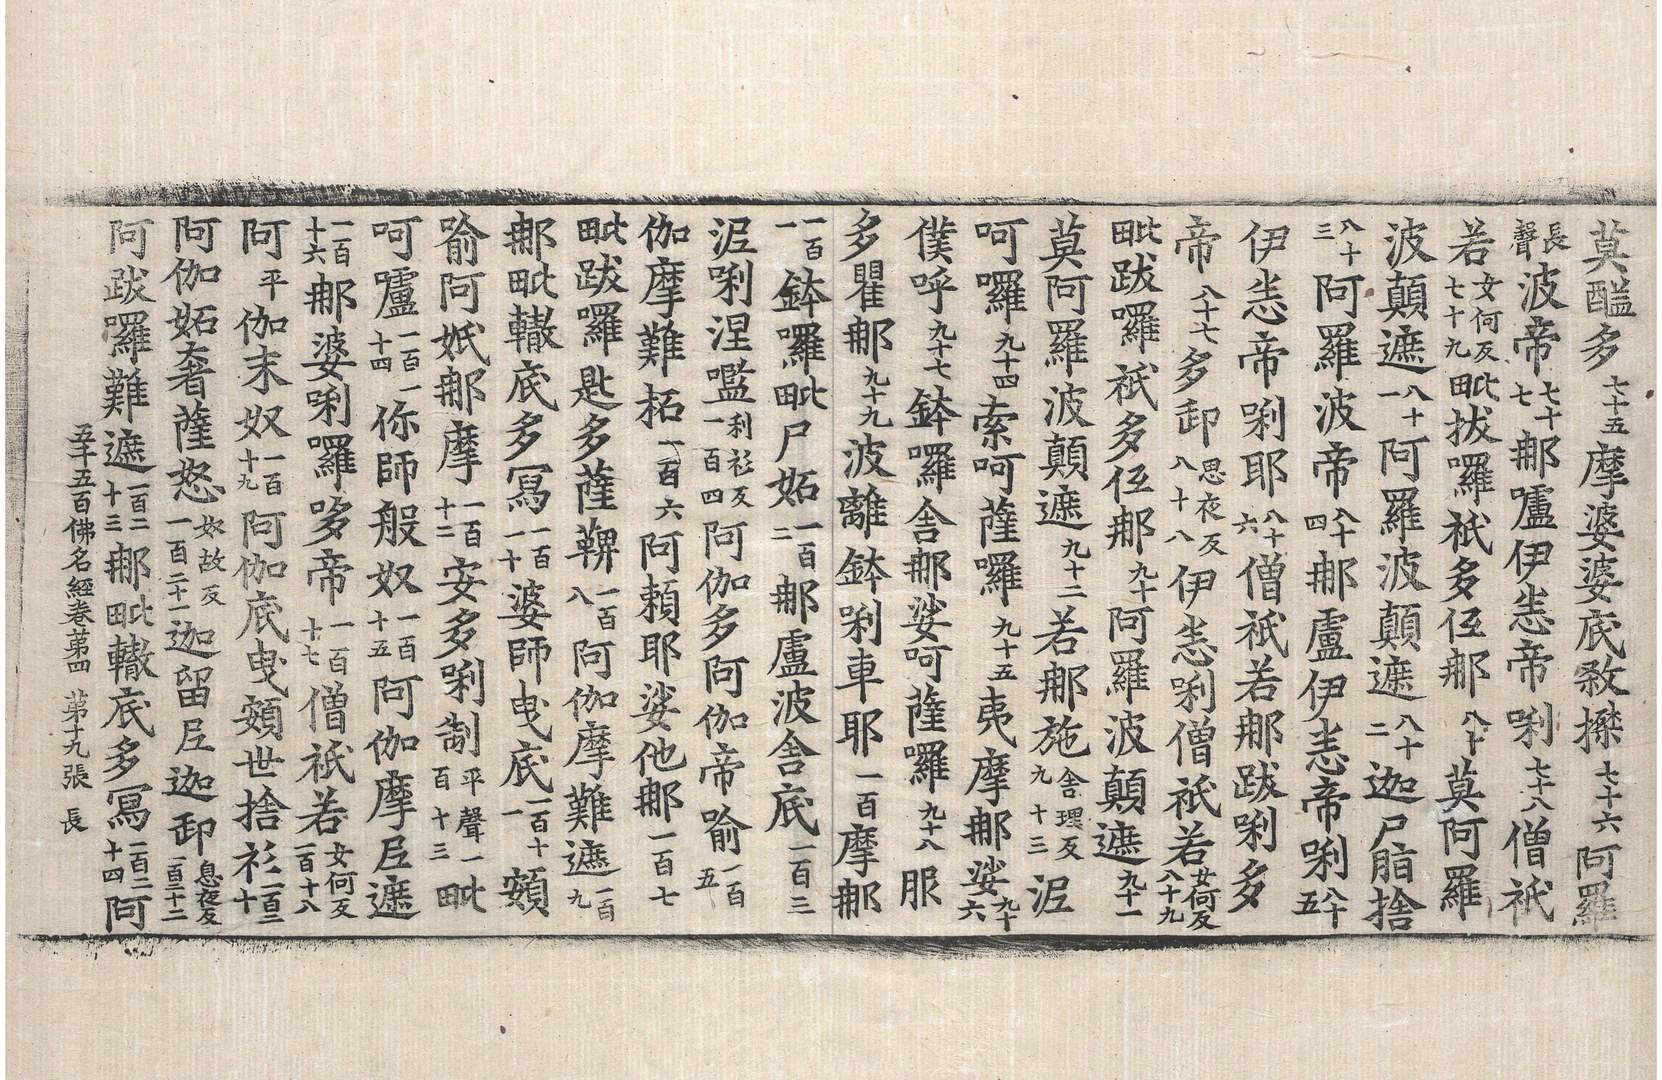 莫醯多七十五摩婆婆底敇㨶七十六阿羅
長聲波帝七十七那嚧伊恙帝唎七十八僧祇
若女何反七十九毗拔囉祇多侄那八十莫阿羅
波顛遮八十一阿羅波顛遮八十二迦尸脂捨
八十三阿羅波帝八十四那盧伊恙帝唎八十五
伊恙帝唎耶八十六僧祇若那跋唎多
帝八十七多卸思夜反八十八伊恙唎僧祇若女何反八十九
毗跋囉祇多侄那九十阿羅波顛遮九十一
莫阿羅波顛遮九十二若那施舍理反九十三泥
呵囉九十四索呵薩囉九十五夷摩那娑九十六
僕呼九十七鉢囉舍那娑呵薩囉九十八服
多瞿那九十九波離鉢唎車耶一百摩那
一百一鉢囉毗尸妬一百二那盧波舍底一百三
泥唎涅㘕利衫反一百四阿伽多阿伽帝喻一百五
伽摩難柘一百六阿賴耶娑他那一百七
毗跋囉匙多薩鞞一百八阿伽摩難遮一百九
那毗轍底多寫一百一十婆師曳底一百十一頞
喻阿娬那摩一百十二安多唎制平聲一百十三毗
呵嚧一百一十四你師般奴一百十五阿伽摩𡰱遮
一百十六那婆唎囉哆帝一百十七僧祇若女何反一百十八
阿平伽末奴一百十九阿伽底曳頞世捨衫一百二十
阿伽妬奢薩怒奴故反一百二十一迦留𡰱迦卸息夜反一百二十二
阿跋囉難遮一百二十三那毗轍底多寫一百二十四阿
五千五百佛名經卷第四 第十九張 長